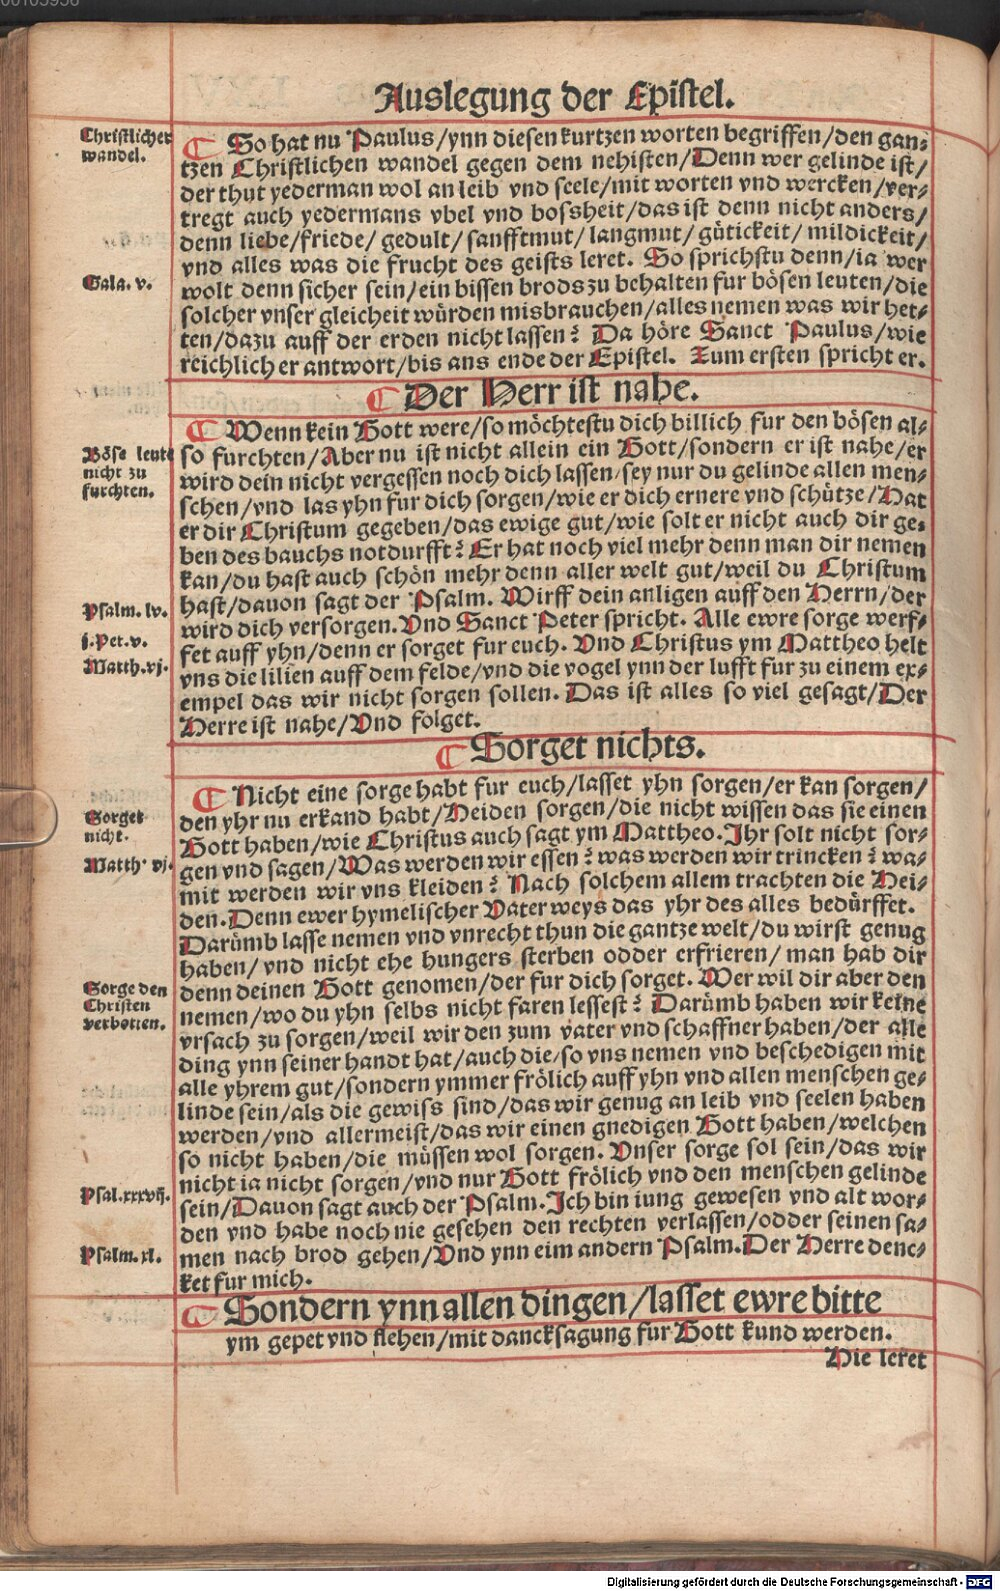 00103956
Auslegung der Epistel.
Christlicher
wandel.
So hat nu Paulus/ynn diesen kurtzen worten begriffen/den gan⸗
tzen Christlichen wandel gegen dem nehisten/Denn wer gelinde ist/
der thut yederman wol an leib vnd seele/mit worten vnd wercken/ver⸗
tregt auch yedermans vbel vnd bossheit/das ist denn nicht anders/
denn liebe/friede/gedult/sanfftmut/langmut/gütickeit/mildickeit/
Gala. v.
vnd alles was die frucht des geists leret. So sprichstu denn/ia wer
wolt denn sicher sein/ein bissen brods zu behalten fur bösen leuten/die
solcher vnser gleicheit würden misbrauchen/alles nemen was wir het⸗
ten/dazu auff der erden nicht lassen? Da höre Sanct Paulus/wie
reichlich er antwort/bis ans ende der Epistel. Zum ersten spricht er.
Der Herr ist nahe.
Wenn kein Gott were/so möchtestu dich billich fur den bösen al⸗
Böse leute
nicht zu
furchten.
so furchten/Aber nu ist nicht allein ein Gott/sondern er ist nahe/er
wird dein nicht vergessen noch dich lassen/sey nur du gelinde allen men⸗
schen/vnd las yhn fur dich sorgen/wie er dich ernere vnd schütze/Hat
er dir Christum gegeben/das ewige gut/wie solt er nicht auch dir ge⸗
ben des bauchs notdurfft? Er hat noch viel mehr denn man dir nemen
kan/du hast auch schön mehr denn aller welt gut/weil du Christum
Psalm. lv.
hast/dauon sagt der Psalm. Wirff dein anligen auff den Herrn/der
wird dich versorgen. Vnd Sanct Peter spricht. Alle ewre sorge werf⸗
j. Pet. v.
fet auff yhn/denn er sorget fur euch. Vnd Christus ym Mattheo helt
Matth. vj.
vns die lilien auff dem felde/vnd die vogel ynn der lufft fur zu einem ex⸗
empel das wir nicht sorgen sollen. Das ist alles so viel gesagt/Der
Herre ist nahe/Vnd folget.
Sorget nichts.
Nicht eine sorge habt fur euch/lasset yhn sorgen/er kan sorgen/
Sorget
nicht.
den yhr nu erkand habt/Heiden sorgen/die nicht wissen das sie einen
Gott haben/wie Christus auch sagt ym Mattheo. Ihr solt nicht sor⸗
Matth. vj.
gen vnd sagen/Was werden wir essen? was werden wir trincken? wa⸗
mit werden wir vns kleiden? Nach solchem allem trachten die Hei⸗
den. Denn ewer hymelischer Vater weys das yhr des alles bedürffet.
Darümb lasse nemen vnd vnrecht thun die gantze welt/du wirst genug
haben/vnd nicht ehe hungers sterben odder erfrieren/man hab dir
Sorge den
Christen
verbotten.
denn deinen Gott genomen/der fur dich sorget. Wer wil dir aber den
nemen/wo du yhn selbs nicht faren lessest? Darümb haben wir keine
vrsach zu sorgen/weil wir den zum vater vnd schaffner haben/der alle
ding ynn seiner handt hat/auch die/so vns nemen vnd beschedigen mit
alle yhrem gut/sondern ymmer frölich auff yhn vnd allen menschen ge⸗
linde sein/als die gewiss sind/das wir genug an leib vnd seelen haben
werden/vnd allermeist/das wir einen gnedigen Gott haben/welchen
so nicht haben/die müssen wol sorgen. Vnser sorge sol sein/das wir
nicht ia nicht sorgen/vnd nur Gott frölich vnd den menschen gelinde
Psal. xxxvij.
sein/Dauon sagt auch der Psalm. Ich bin iung gewesen vnd alt wor⸗
den vnd habe noch nie gesehen den rechten verlassen/odder seinen sa⸗
Psalm. xl.
men nach brod gehen/Vnd ynn eim andern Psalm. Der Herre denc⸗
ket fur mich.
Sondern ynn allen dingen/lasset ewre bitte
ym gepet vnd flehen/mit dancksagung fur Gott kund werden.
Hie leret
Digitalisierung gefördert durch die Deutsche Forschungsgemeinschaft - DFG